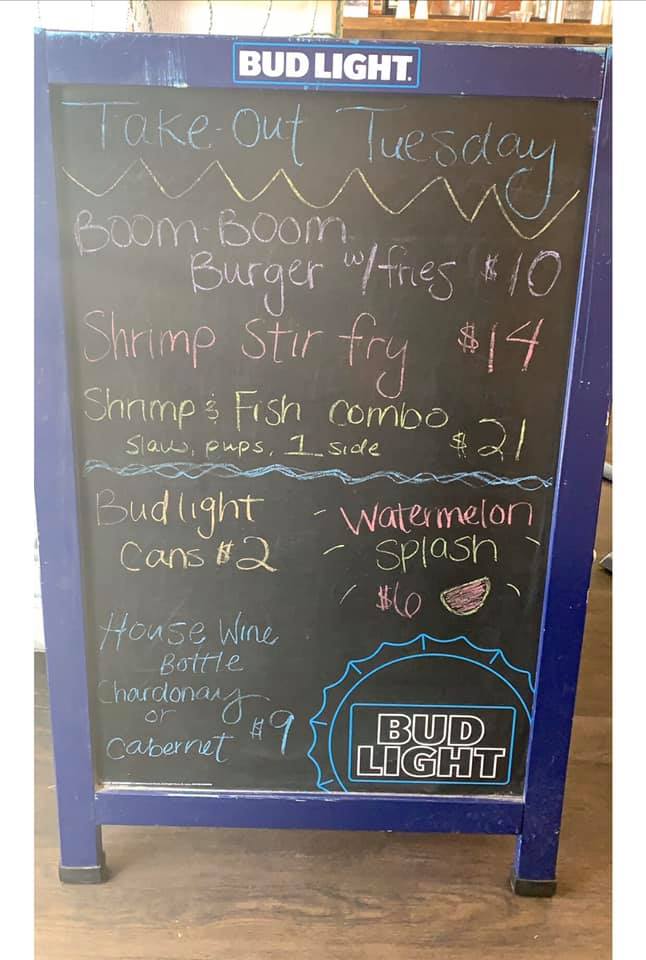 BUD LIGHT
Take-Out Tuesday
Boom-Boom
Burger w/ fries $10
Shrimp Stir fry $14
Shrimp & Fish combo
slaw, pups, 1 side $21
Bud light
Cans $2
Watermelon
Splash
$6
House Wine
Bottle
Chardonay
or
cabernet $9
BUD
LIGHT